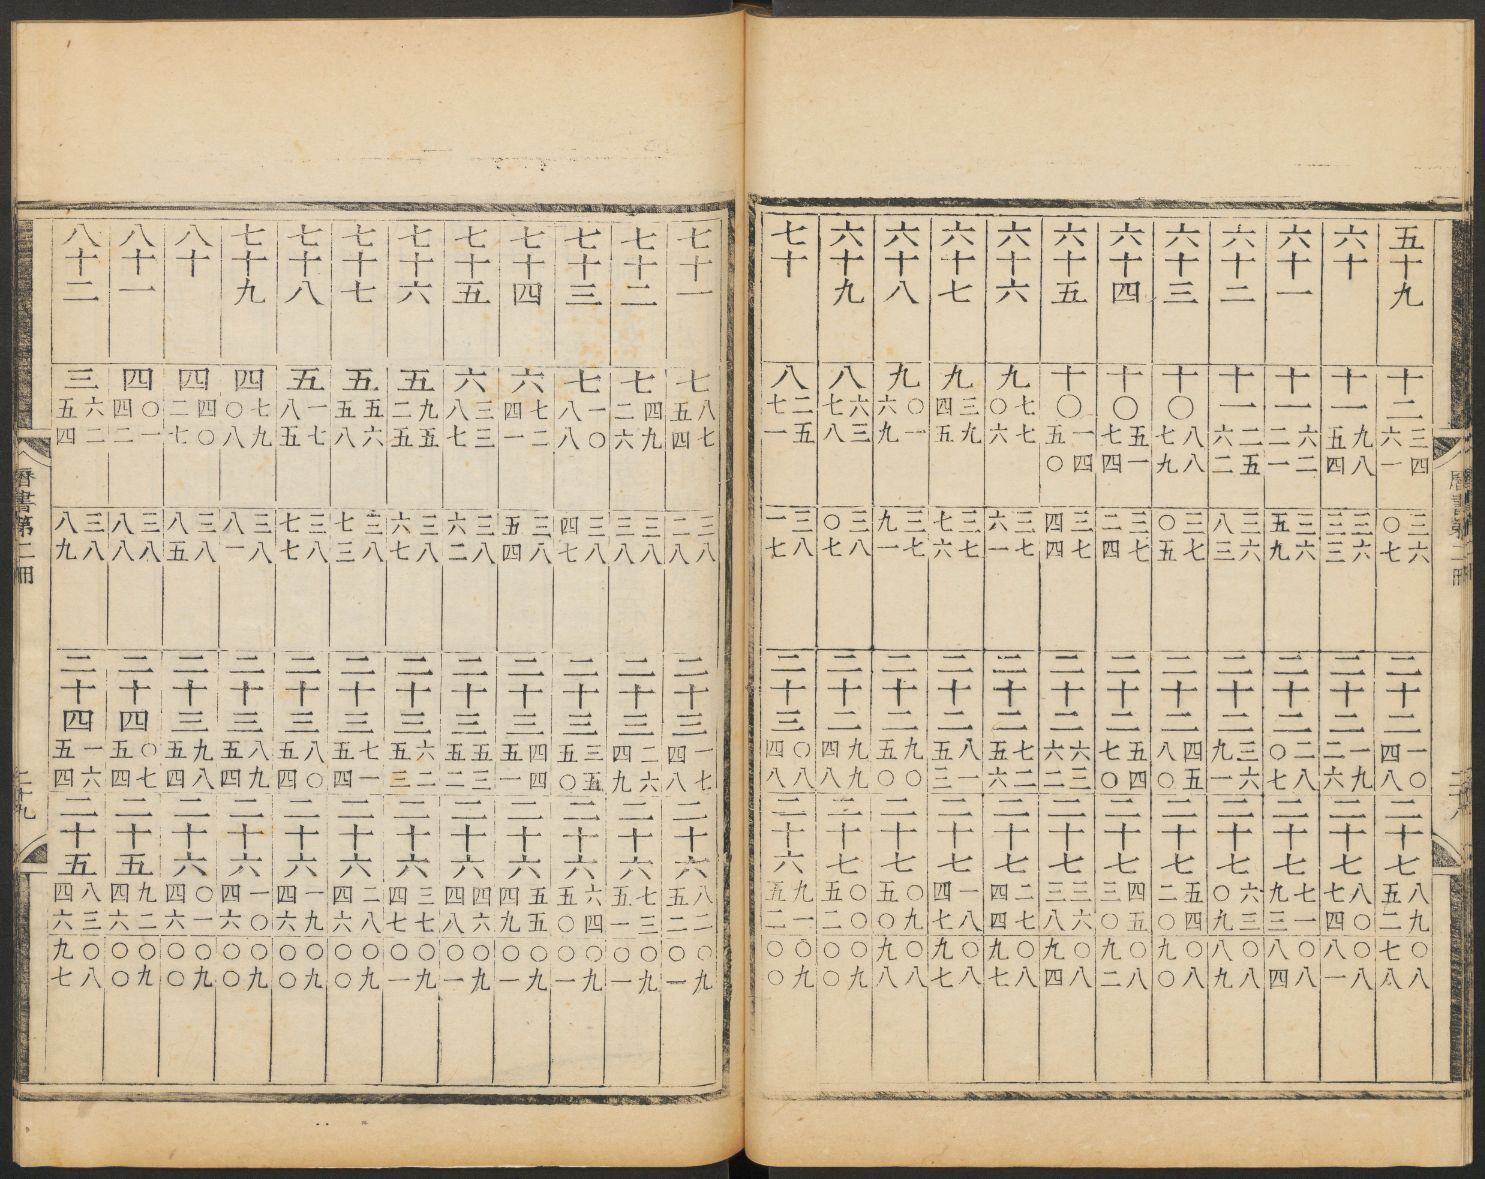 曆書第二冊 二十八
五十九 十二 三四六一 三六〇七 二十二 一〇四八 二十七 八九五二 〇八七八
六十 十一 九八五四 三六三三 二十二 一九二六 二十七 八〇七四 〇八八一
六十一 十一 六二二一 三六五九 二十二 二八〇七 二十七 七一九三 〇八八四
六十二 十一 二五六二 三六八三 二十二 三六九一 二十七 六三〇九 〇八八九
六十三 十〇 八八七九 三七〇五 二十二 四五八〇 二十七 五四二〇 〇八九〇
六十四 十〇 五一七四 三七二四 二十二 五四七〇 二十七 四五三〇 〇八九二
六十五 十〇 一四五〇 三七四四 二十二 六三六二 二十七 三六三八 〇八九四
六十六 九 七七〇六 三七六一 二十二 七二五六 二十七 二七四四 〇八九七
六十七 九 三九四五 三七七六 二十二 八一五三 二十七 一八四七 〇八九七
六十八 九 〇一六九 三七九一 二十二 九〇五〇 二十七 〇九五〇 〇八九八
六十九 八 六三七八 三八〇七 二十二 九九四八 二十七 〇〇五二 〇九〇〇
七十 八 二五七一 三八一七 二十三 〇八四八 二十六 九一五二 〇九〇〇
七十一 七 八七五四 三八二八 二十三 一七四八 二十六 八二五二 〇九〇一
七十二 七 四九二六 三八三八 二十三 二六四九 二十六 七三五一 〇九〇一
七十三 七 一〇八八 三八四七 二十三 三五五〇 二十六 六四五〇 〇九〇一
七十四 六 七二四一 三八五四 二十三 四四五一 二十六 五五四九 〇九〇一
七十五 六 三三八七 三八六二 二十三 五三五二 二十六 四六四八 〇九〇一
七十六 五 九五二五 三八六七 二十三 六二五三 二十六 三七四七 〇九〇一
七十七 五 五六五八 三八七三 二十三 七一五四 二十六 二八四六 〇九〇〇
七十八 五 一七八五 三八七七 二十三 八〇五四 二十六 一九四六 〇九〇〇
七十九 四 七九〇八 三八八一 二十三 八九五四 二十六 一〇四六 〇九〇〇
八十 四 四〇二七 三八八五 二十三 九八五四 二十六 〇一四六 〇九〇〇
八十一 四 〇一四二 三八八八 二十四 〇七五四 二十五 九二四六 〇九〇〇
八十二 三 六二五四 三八八九 二十四 一六五四 二十五 八三四六 〇八九七
曆書第二冊 二十九